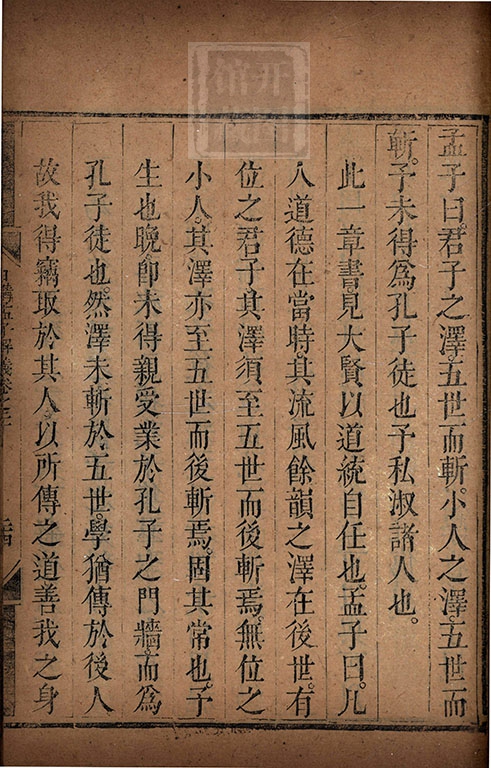 孟子曰。君子之澤。五世而斬。小人之澤。五世而
斬。予未得爲孔子徒也予私淑諸人也。
此一章書。見大賢以道統自任也。孟子曰。凡
人道德在當時。其流風餘韻之澤在後世。有
位之君子。其澤須至五世而後斬焉。無位之
小人。其澤亦至五世而後斬焉。固其常也。予
生也晚。卽未得親受業於孔子之門牆。而爲
孔子徒也。然澤未斬於五世。學猶傳於後人
故我得竊取於其人。以所傳之道善我之身